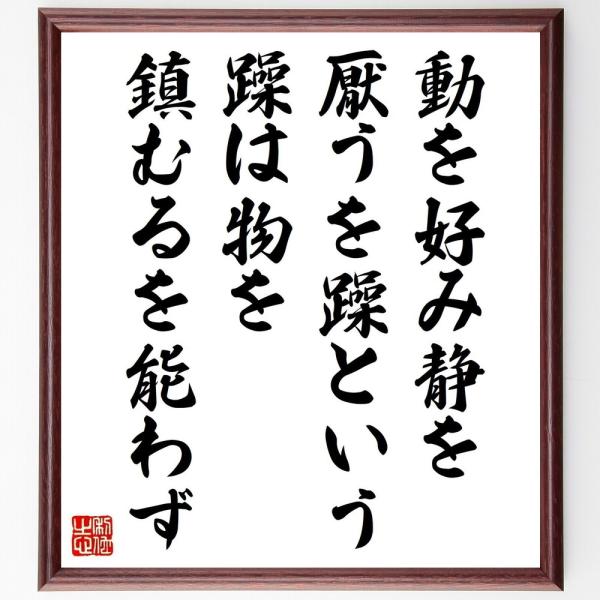 動を好み静を
厭うを躁という
躁は物を
鎮むるを能わず